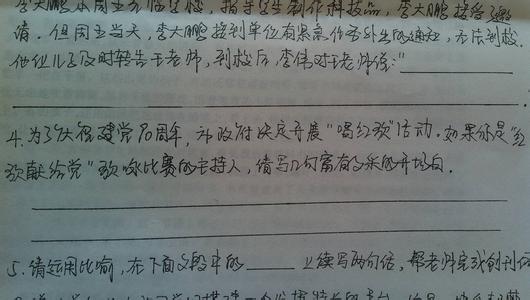 李大鹏本周五前临学校，指导学生制作科技品，李大鹏接受了邀
请。但周五当天，李大鹏接到单位有紧急任务外出的通知，无法到校。
他让儿子及时转告王老师，到校后，李伟对王老师说："
4.为了庆祝建党70周年，市政府决定开展"唱红歌"活动。如果你是"红
歌献给党"歌咏比赛的主持人，请写几句富有文采的开场白。
5.请运用比喻，在下面文段中的____上续写两句话，帮老师完成创刊